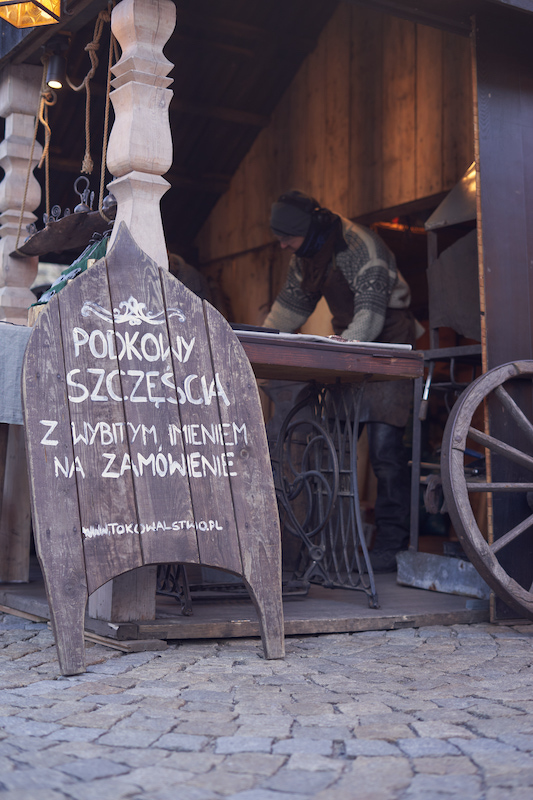 PODKOWY
SZCZĘŚCIA
Z WYBITYM IMIENIEM
NA ZAMÓWIENIE
www.TOKOWALSTWO.PL